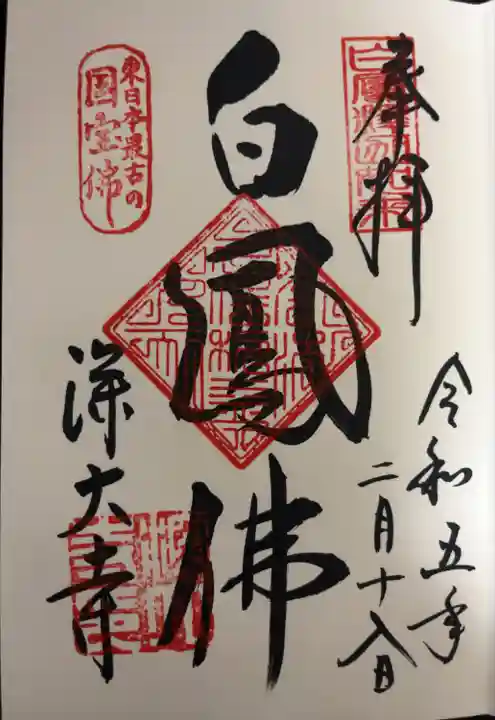 奉拝
令和五年
二月十八日
白鳳佛
東日本最古の
国宝佛
深大寺